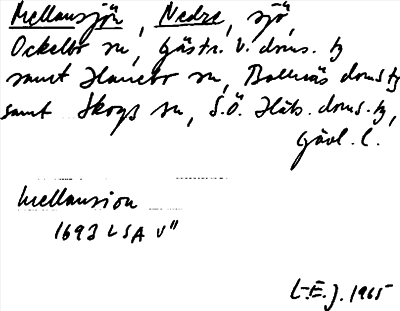 Mellansjön, Nedre, sjö,
Ockelbo sn, Gästr. v. doms. tg
samt Hanebo sn, Bollnäs doms tg
samt Skogs sn, S.Ö. Häls. doms. tg,
Gävl. l.
Mellansion
1693 LSA V 11
L-E. J. 1965